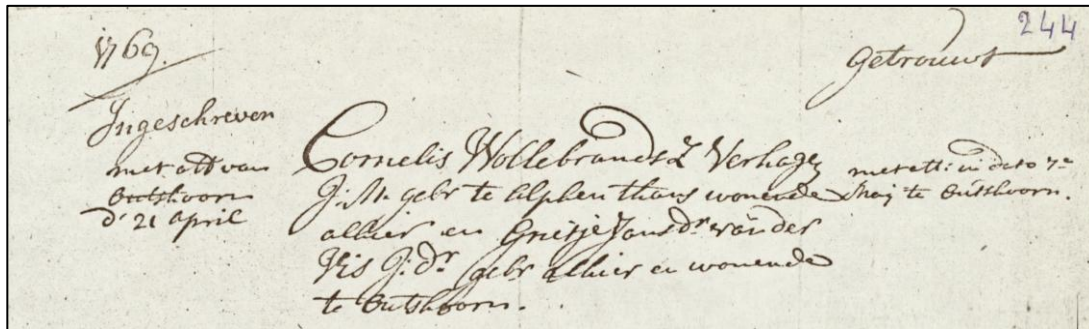 244
1769.
Getrouwt
Ingeschreven
met att van
Outshoorn
d' 21 April
Cornelis Wollebrandtsz Verhagen
J:M. gebr te Alphen thans wonende
alhier en Grietje Jansdr van der
Vis J:dr gebr alhier en wonende
te Outshoorn.
met att: in dato 7e
Maij te Outshoorn.